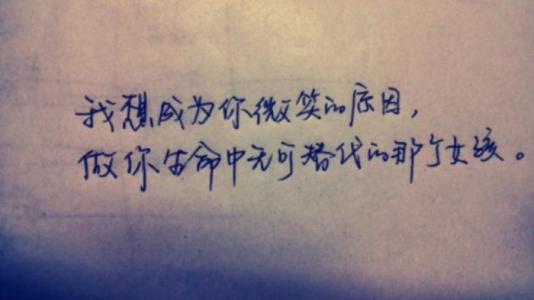 我想成为你微笑的原因，
做你生命中无可替代的那个女孩。